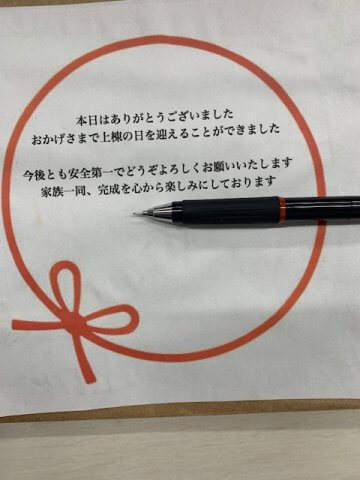 本日はありがとうございました
おかげさまで上棟の日を迎えることができました
今後とも安全第一でどうぞよろしくお願いいたします
家族一同、完成を心から楽しみにしております